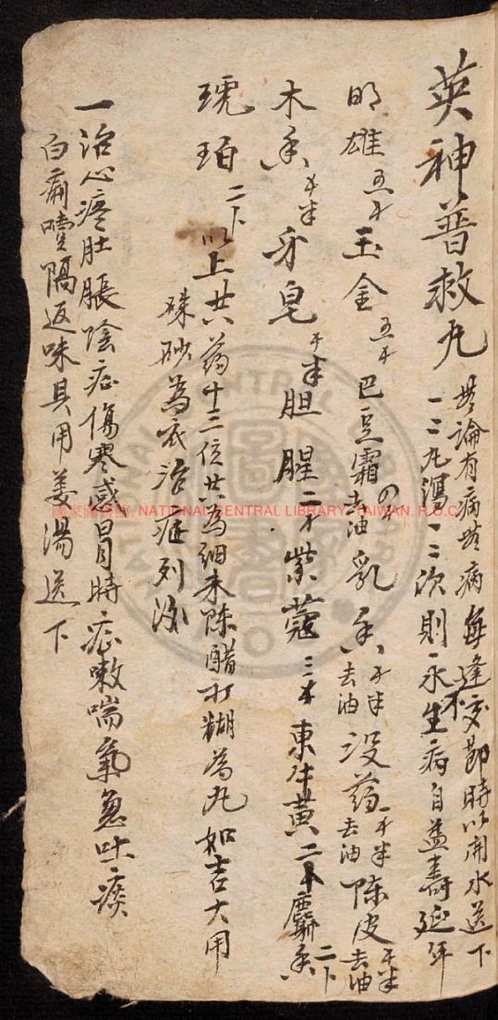 英神普救丸
無論有病無病每逢交節時以開水送下
一二丸瀉一二次則永不生病自益壽延年
明雄五 玉金五 巴豆霜去油 乳香 去油 没药 去油 陈皮 去油
木香 牙皂 胆腥二 紫蔻三 東牛黄二 麝香二
琥珀二 以上共药十三位共為細末陈醋打糊為丸如吉大用
硃砂為衣治症列後
一治心疼肚脹陰症傷寒感冒時症嗽喘氣急吐痰
白痢噎隔返味具用姜湯送下
國家圖書館 NATIONAL CENTRAL LIBRARY, TAIWAN, R.O.C